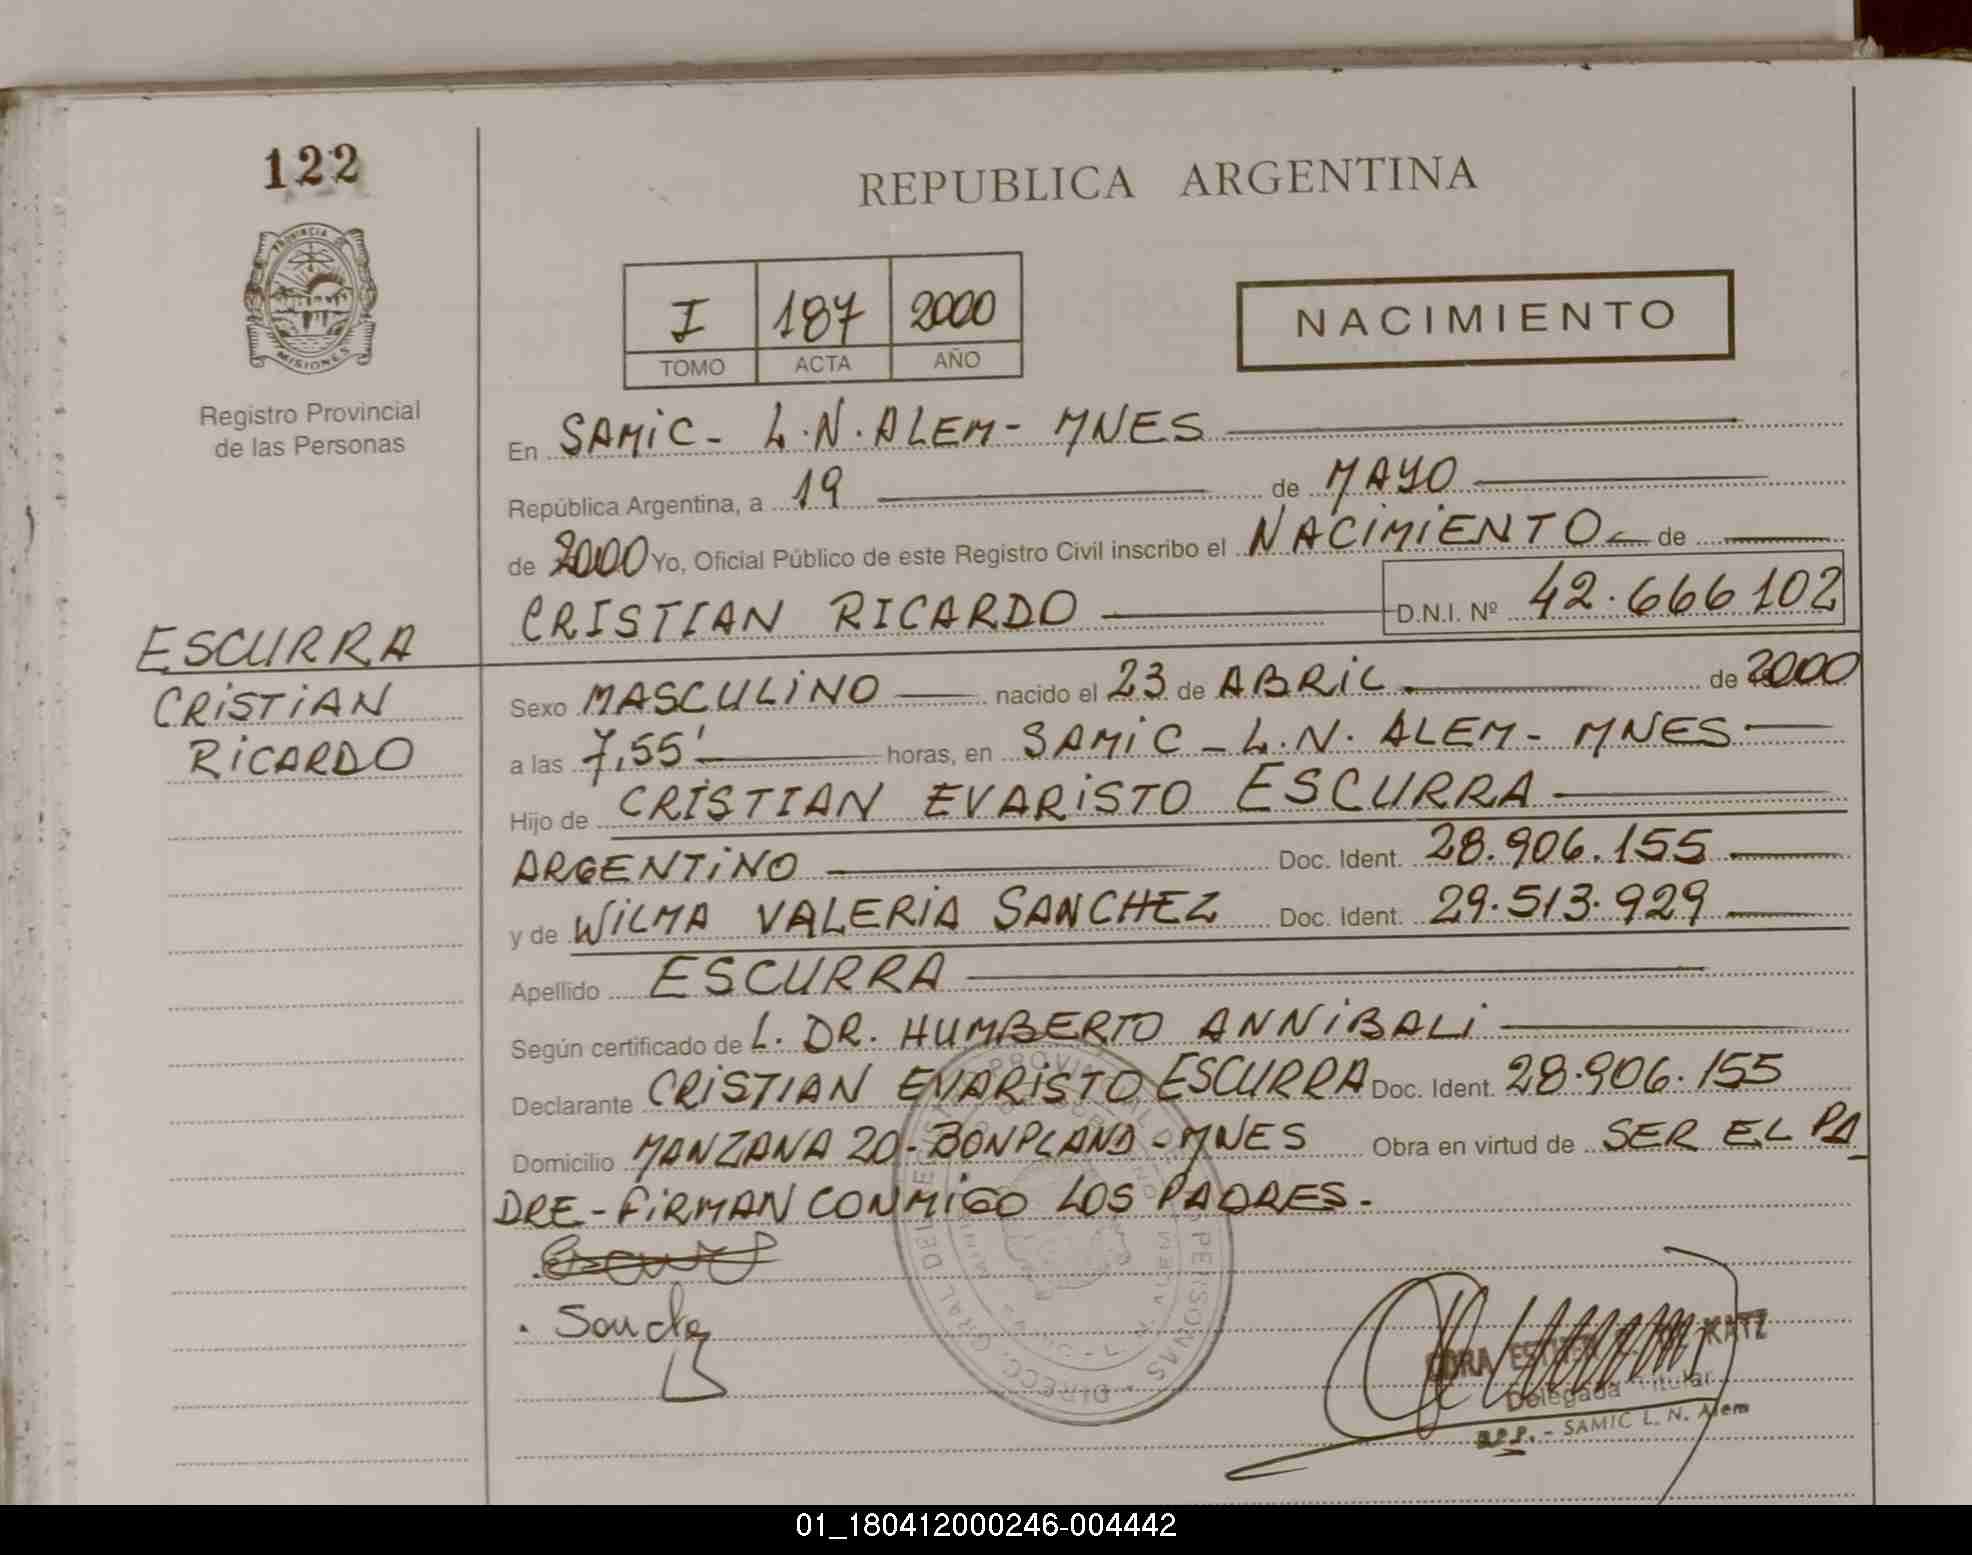 122
REPUBLICA ARGENTINA
PROVINCIA DE
MISIONES
Registro Provincial
de las Personas
I 187 2000
TOMO ACTA AÑO
NACIMIENTO
En SAMIC - L.N. ALEM - MNES
República Argentina, a 19 de MAYO
de 2000 Yo, Oficial Público de este Registro Civil inscribo el NACIMIENTO de
CRISTIAN RICARDO D.N.I. Nº 42.666102
ESCURRA
CRISTIAN
RICARDO
Sexo MASCULINO nacido el 23 de ABRIL de 2000
a las 7,55' horas, en SAMIC - L.N. ALEM - MNES
Hijo de CRISTIAN EVARISTO ESCURRA
ARGENTINO Doc. Ident. 28.906.155
y de WILMA VALERIA SANCHEZ Doc. Ident. 29.513.929
Apellido ESCURRA
Según certificado de L. DR. HUMBERTO ANNIBALI
Declarante CRISTIAN EVARISTO ESCURRA Doc. Ident. 28.906.155
Domicilio MANZANA 20 - BONPLAND - MNES Obra en virtud de SER EL PA
DRE - FIRMAN CONMIGO LOS PADRES.
ESTHER KATZ
Delegada Titular
R.P.P. - SAMIC L. N. Alem
01_180412000246-004442